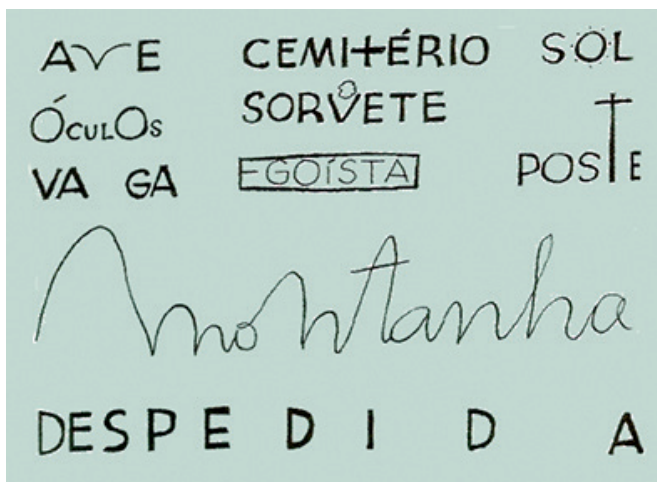 AVE CEMITÉRIO SOL
ÓCULOS SORVETE
VA GA EGOÍSTA POSTE
montanha
DESPEDIDA